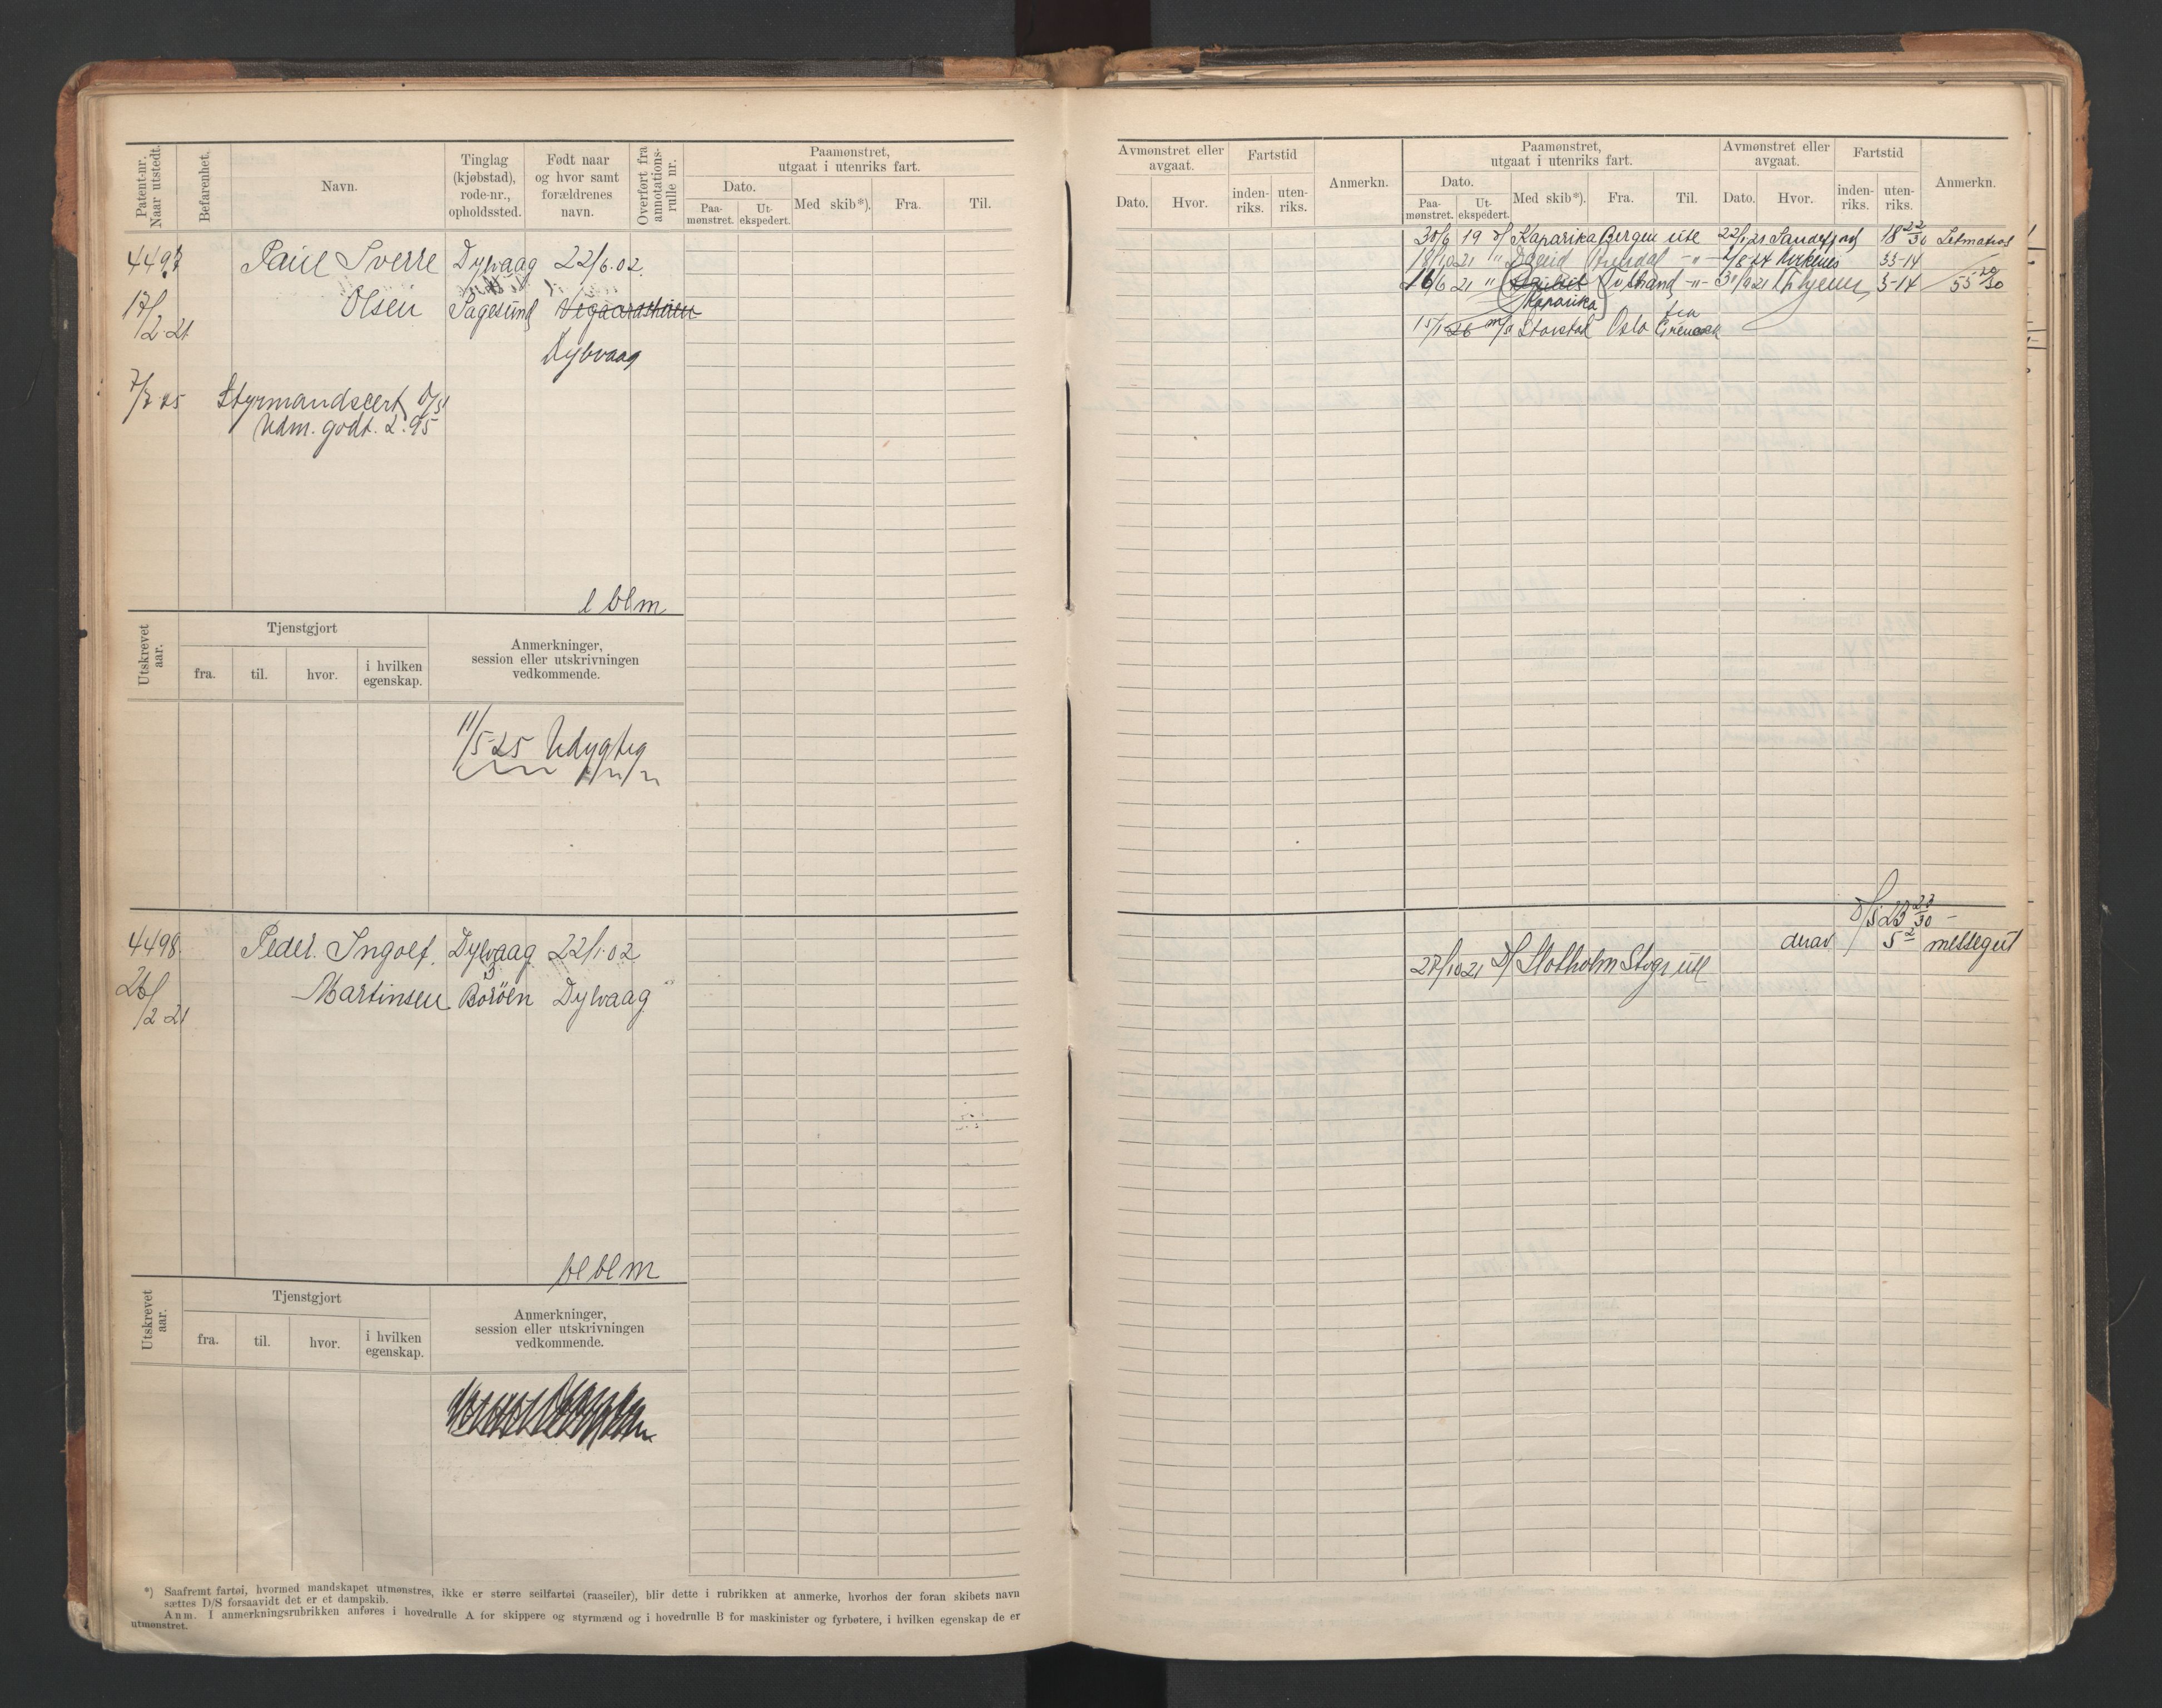 Patent-nr. Naar utstedt.
Befarenhet.
Navn.
Tinglag (kjøbstad), rode-nr., opholdssted.
Født naar og hvor samt forældrenes navn.
Overført fra annotations-rulle nr.
Paamønstret, utgaat i utenriks fart.
Dato.
Paa-mønstret.
Ut-ekspedert.
Med skib*).
Fra.
Til.
4497
Paul Sverre
Dybvaag
22/6.02.
17/2 21
Olsen
Sagesund
Vegaardsheien
Dybvaag
7/3 25
Styrmandscert
Udm. godt. 2.95
l bl m
Utskrevet aar.
Tjenstgjort
fra.
til.
hvor.
i hvilken egenskap.
Anmerkninger, session eller utskrivningen vedkommende.
11/5-25 Udygtig
4498.
Peder Ingolf
Dybvaag
22/1.02
26/2 21
Martinsen
3
Borøen
Dybvaag
bl bl m
Utskrevet aar.
Tjenstgjort
fra.
til.
hvor.
i hvilken egenskap.
Anmerkninger, session eller utskrivningen vedkommende.
*) Saafremt fartøi, hvormed mandskapet utmønstres, ikke er større seilfartøi (raaseiler), blir dette i rubrikken at anmerke, hvorhos der foran skibets navn
sættes D/S forsaavidt det er et dampskib.
Anm. I anmerkningsrubrikken anføres i hovedrulle A for skippere og styrmænd og i hovedrulle B for maskinister og fyrbøtere, i hvilken egenskap de er
utmønstret.
Avmønstret eller avgaat.
Fartstid
Anmerkn.
Dato.
Hvor.
inden-riks.
uten-riks.
Paamønstret, utgaat i utenriks fart.
Dato.
Paa-mønstret.
Ut-ekspedert.
Med skib*).
Fra.
Til.
Avmønstret eller avgaat.
Dato.
Hvor.
Fartstid
inden-riks.
uten-riks.
Anmerkn.
30/6 19 d/ Kaparika Bergen ute 22/1 21 Sandefjord 18 22/30 Letmatros
18/10 21 " David Arendal -"- 4/8-24 Kirkenes 33-14
16/6 21 " -"- 31/9 21 3-14 55 20/30
Kaparika
15/1 26 m/s Storstad Oslo fra Grenaa
d/s 23 23/30 -
derav 5 2 messegut
27/10 21 D/ Slotholm Stvgr utl